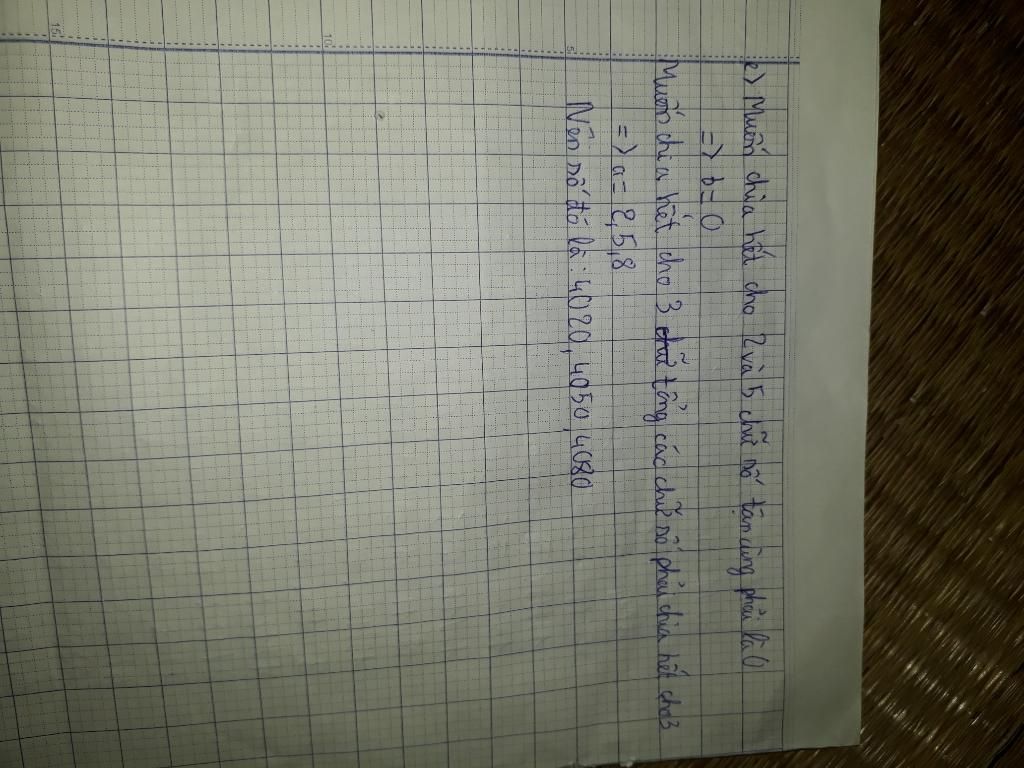 e) Muốn chia hết cho 2 và 5 chữ số tận cùng phải là 0
=> b = 0
Muốn chia hết cho 3 tổng các chữ số phải chia hết cho 3
=> a = 2, 5, 8
Nên số đó là: 4020, 4050, 4080
5
10
15